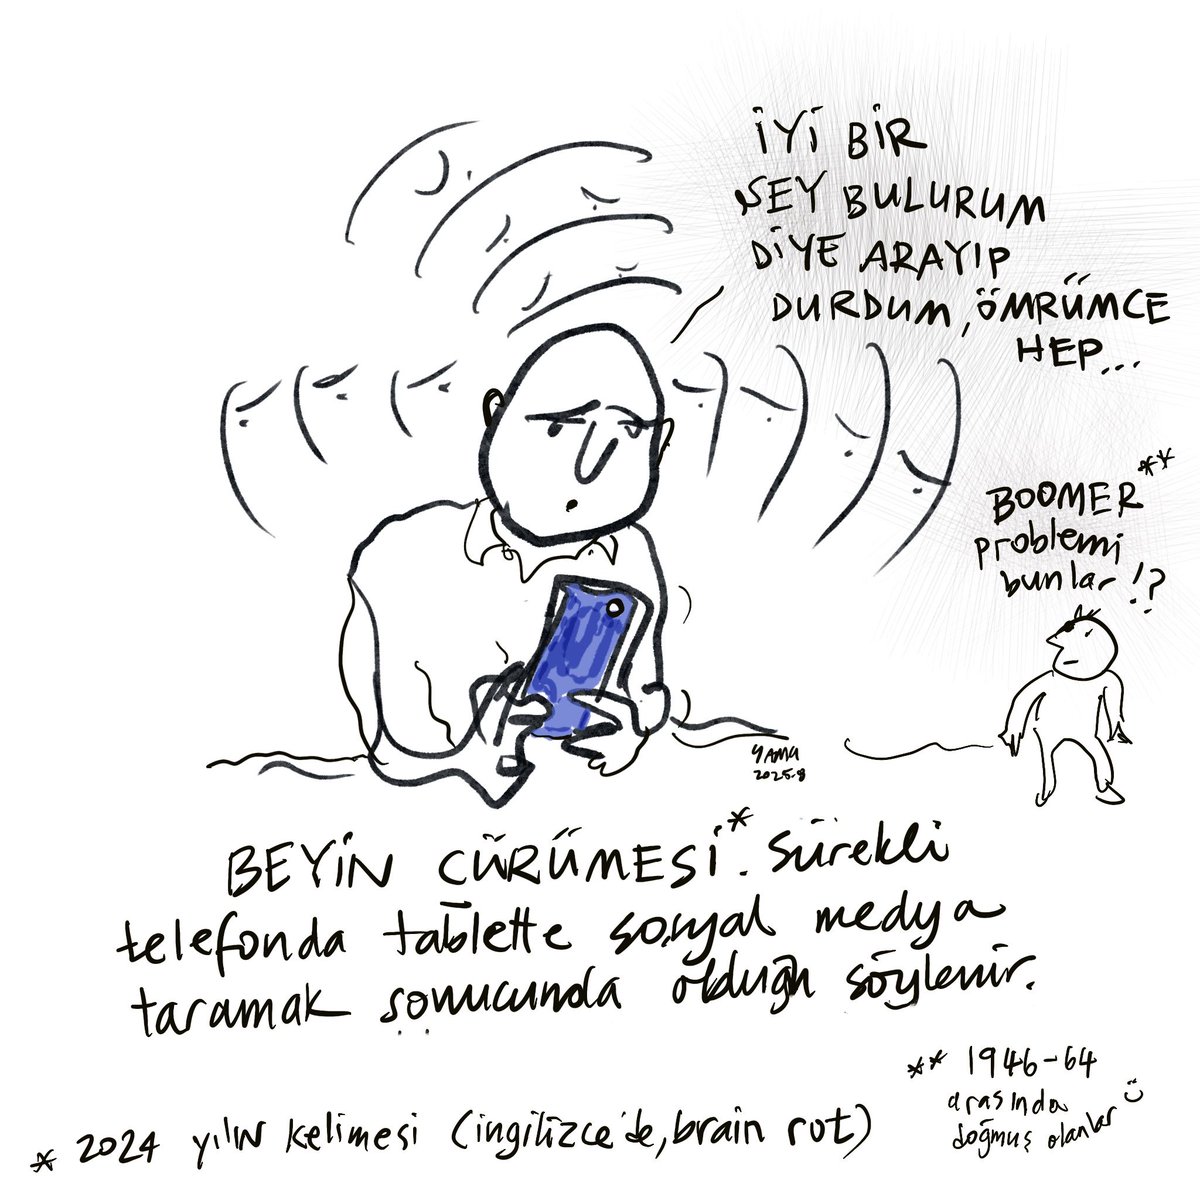 İYİ BİR
ŞEY BULURUM
DİYE ARAYIP
DURDUM, ÖMRÜMCE
HEP...
BOOMER**
problemi
bunlar!?
YAMU
2025.8
BEYİN ÇÜRÜMESİ*. Sürekli
telefonda tablette sosyal medya
taramak sonucunda olduğu söylenir.
** 1946-64
arasında
doğmuş olanlar
* 2024 yılın kelimesi (ingilizce'de, brain rot)